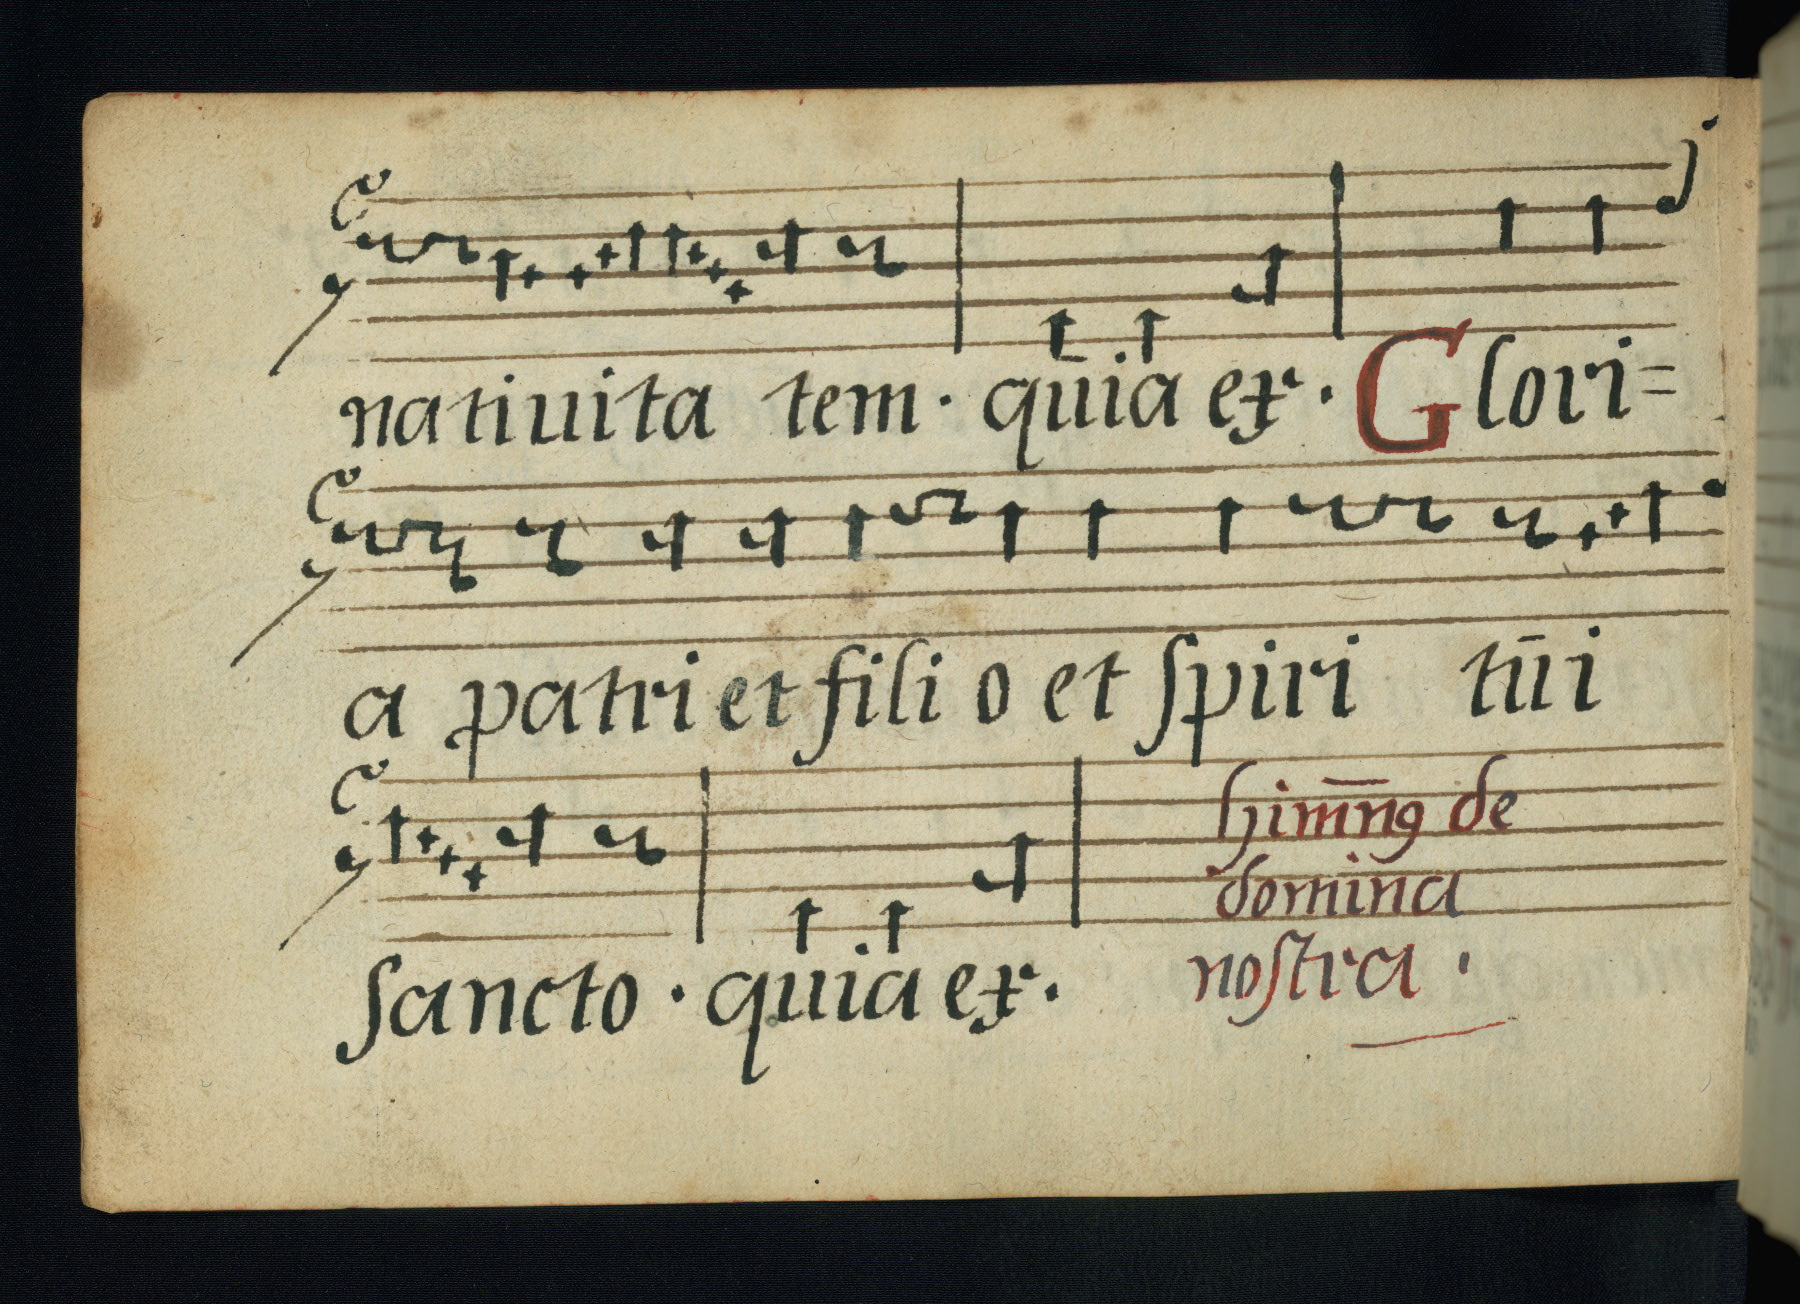 natiuita tem · quia ex · Glori=
a patri et fili o et ſpiri tūi
ſancto · quia ex ·
him̄nꝯ de
domina
noſtra ·